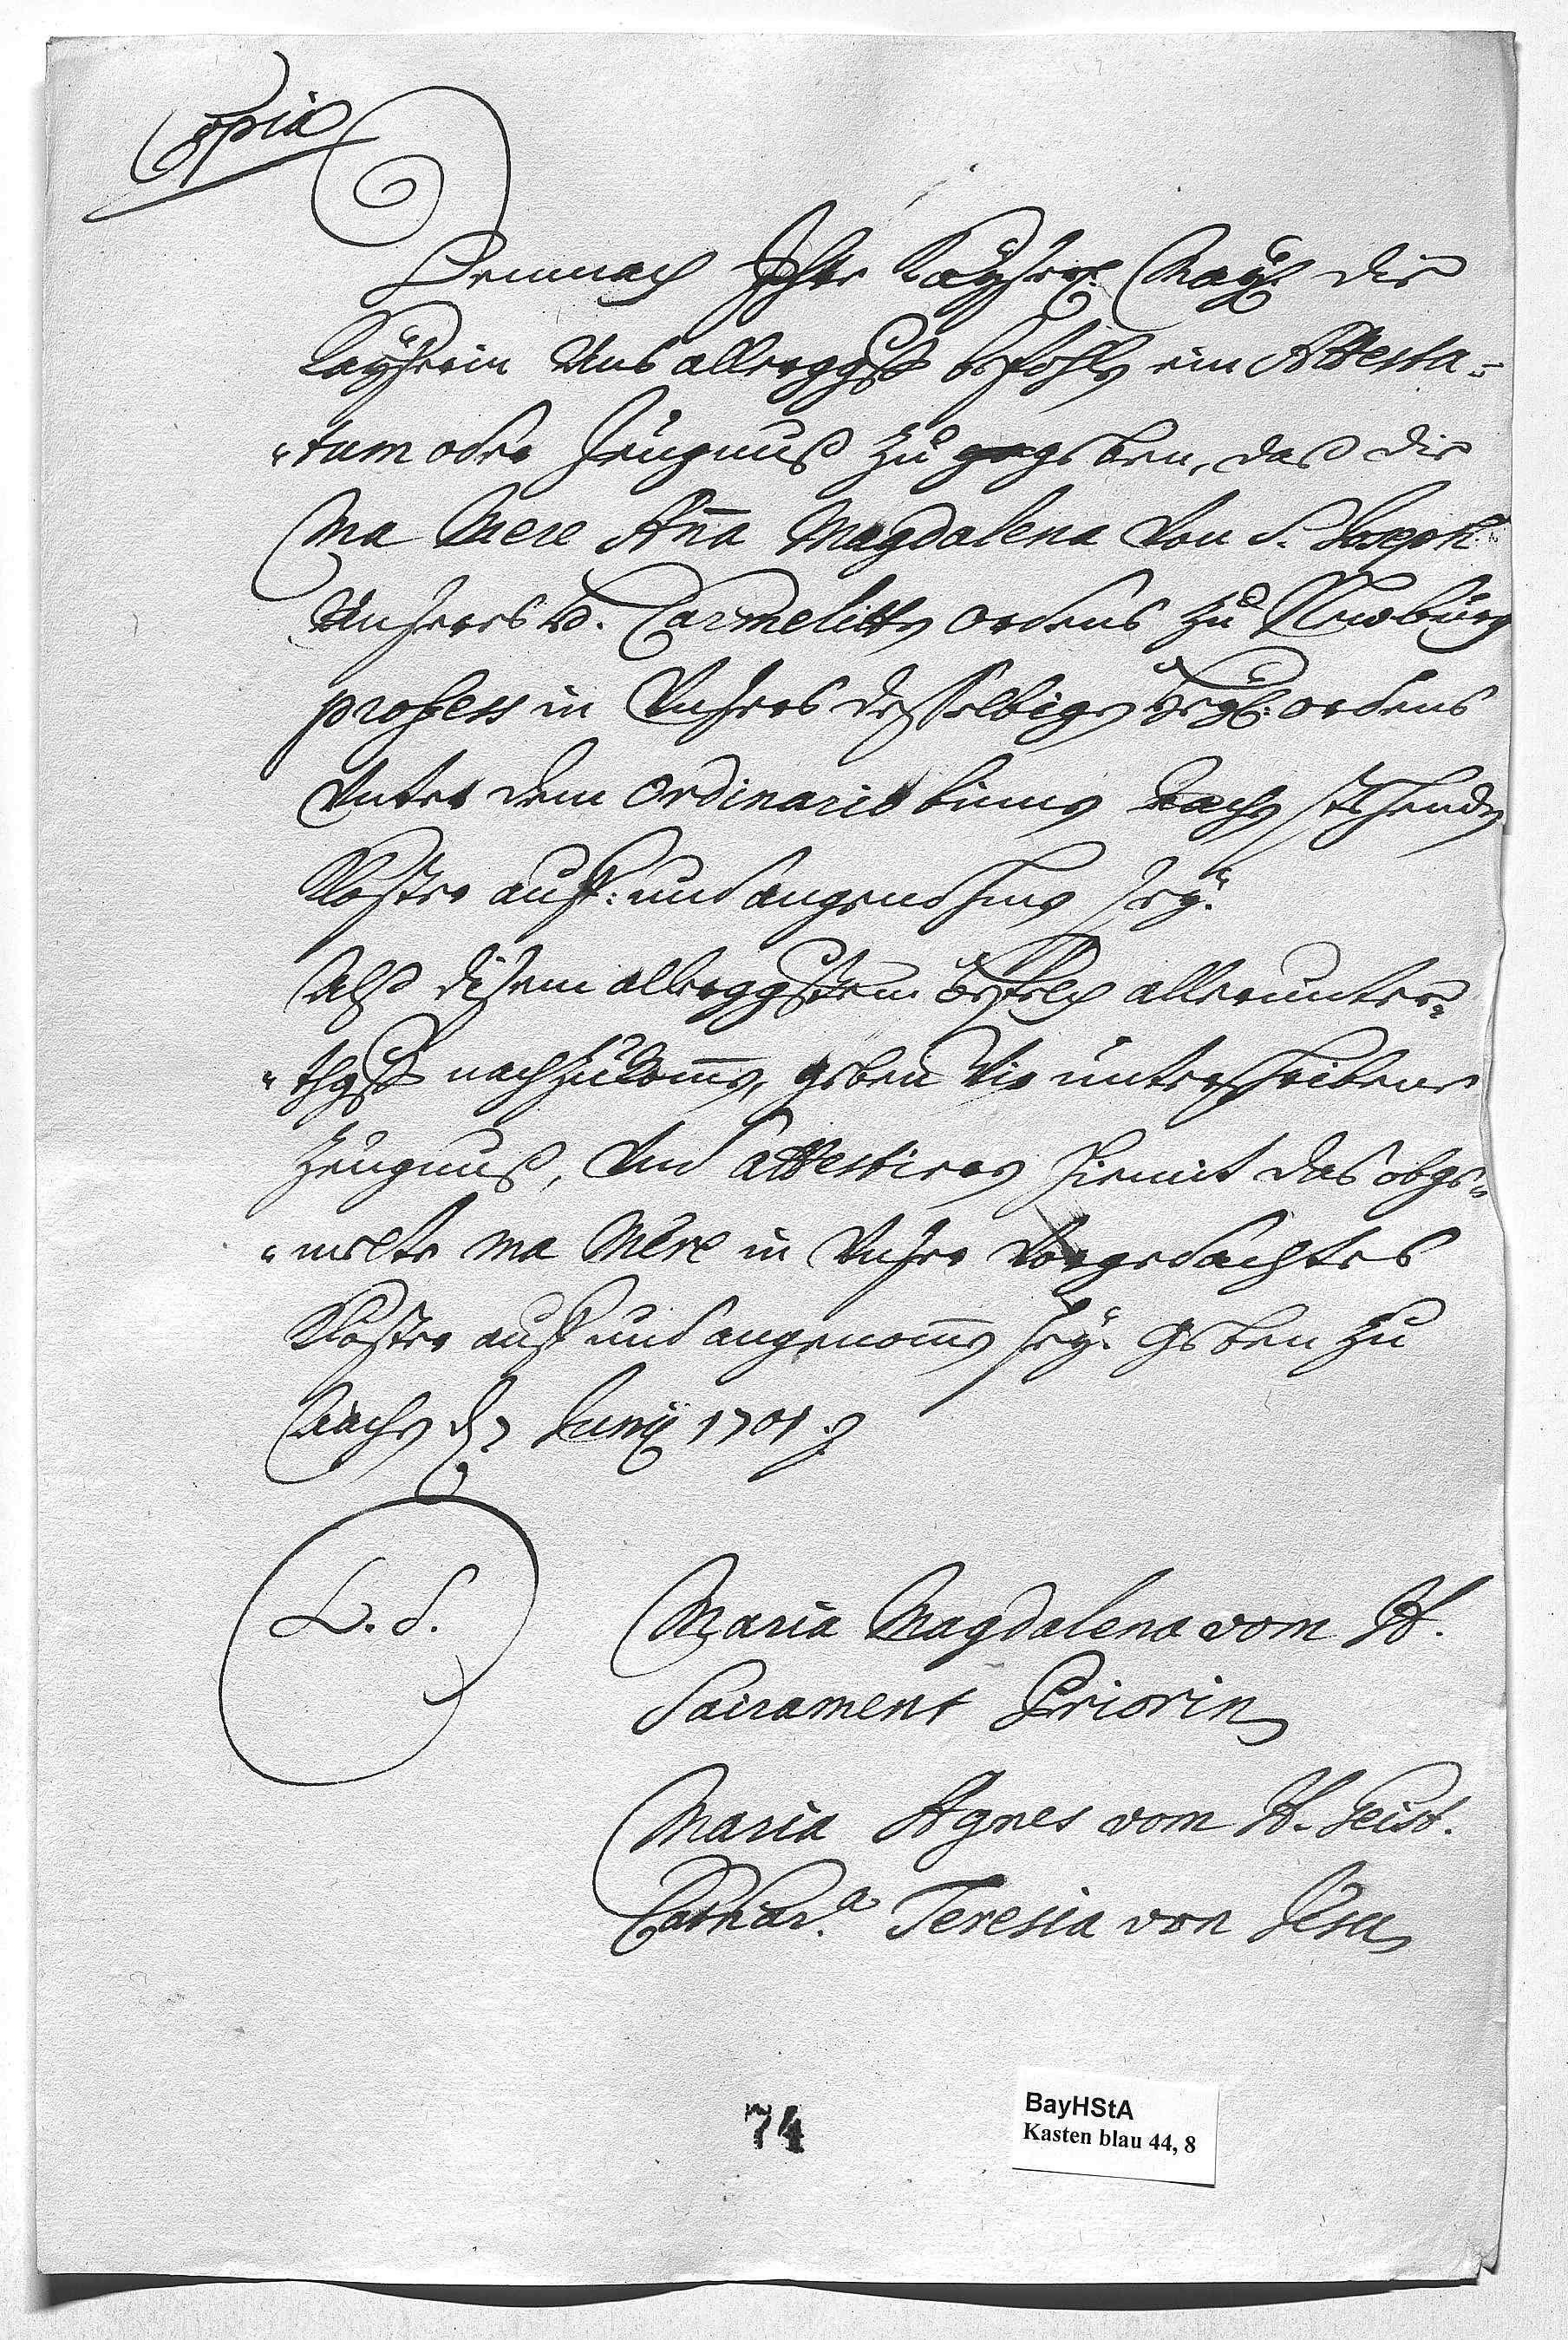 Copia
Demnach Ihro Kayserl. May: die
Kayserin Uns allerggst befohlen ein Attesta-
tum oder Zeugnuß zu gegeben, daß die
Ma Mere Aña Magdalena von S. Joseph
Unsers Carmelitten ordens zu Newburg
profess in Unsers desselbigen ordens
Unter dem Ordinario binnen Aachen stehenden
Kloster auff: und angenohmen sey.
Alß disem allerggstem befelch allerunter-
thgst nachzukomen, geben wir unterschribene
Zeugnuß, Und attestiren hiemit das obge-
melte ma Mere in Unser vorgedachtes
Kloster auff und angenomen sey. Geben zu
Aachen d. 7 Junij 1701
L. S.
Maria Magdalena vom H.
Sacrament Priorin
Maria Agnes vom H. Geist.
Cathar.a Teresia von Jesu
74
BayHStA
Kasten blau 44, 8